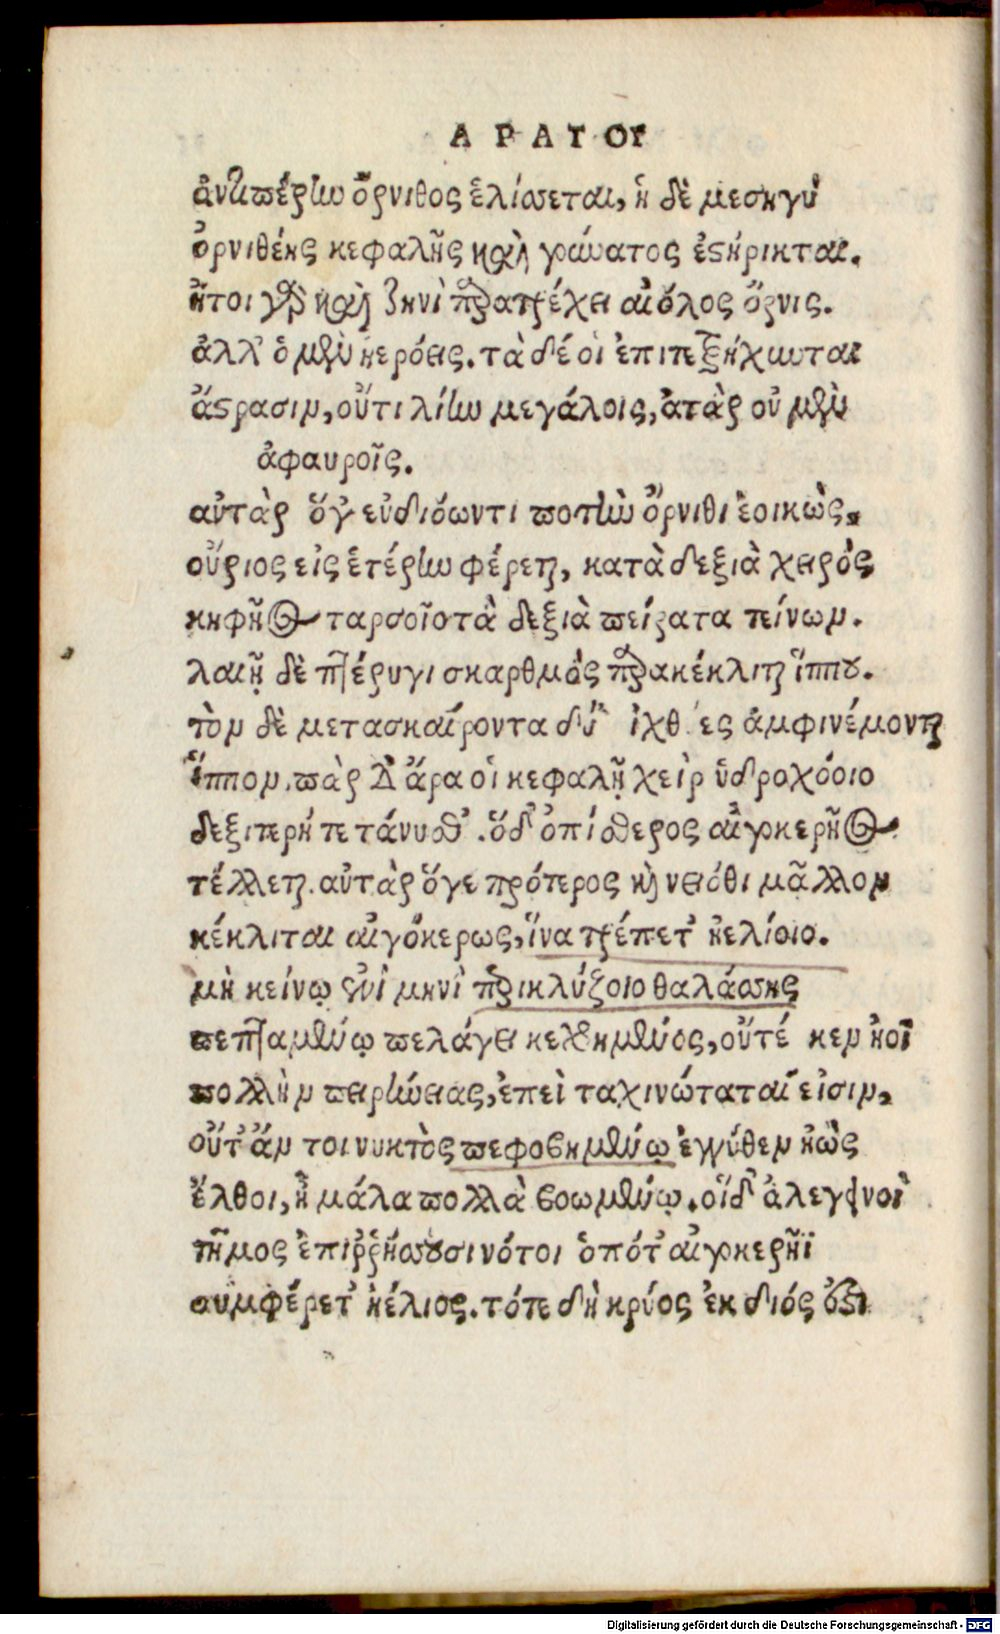 ΑΡΑΤΟΥ
ἀντιπέρην ὄρνιθος ἑλίσσεται, ἡ δὲ μεσηγὺ
ὀρνιθέης κεφαλῆς καὶ γούνατος ἐστήρικται.
ἤτοι γὰρ καὶ ζηνὶ παρατρέχει αἰόλος ὄρνις.
ἀλλ' ὁ μὲν ἠερόεις. τὰ δέ οἱ ἐπιτετρήχυνται
ἄστρασιν, οὔτι λίην μεγάλοις, ἀτὰρ οὐ μὲν
ἀφαυροῖς.
αὐτὰρ ὅγ' εὐδιόωντι ποτὴν ὄρνιθι ἐοικὼς,
οὔριος εἰς ἑτέρην φέρεται, κατὰ δεξιὰ χειρός
κηφῆος ταρσοῖο τὰ δεξιὰ πείρατα τείνων.
λαιῇ δὲ πτέρυγι σκαρθμός παρακέκλιται ἵππου.
τὸν δὲ μετασκαίροντα δύ' ἰχθύες ἀμφινέμονται
ἵππον. πὰρ δ' ἄρα οἱ κεφαλῇ χεὶρ ὑδροχόοιο
δεξιτερή τετάνυσθ'. ὅδ' ὀπίσθερος αἰγοκερῆος
τέλλεται. αὐτὰρ ὅγε πρότερος καὶ νειόθι μᾶλλον
κέκλιται αἰγόκερως, ἵνα τρέπετ' ἠελίοιο.
μὴ κείνῳ ἐνὶ μηνὶ περικλύζοιο θαλάσσης
πεπταμένῳ πελάγει κεχρημένος, οὔτέ κεν ἠοῖ
πολλὴν πειρήνειας, ἐπεὶ ταχινώταταί εἰσιν,
οὔτ' ἄν τοι νυκτὸς πεφοβημένῳ ἐγγύθεν ἠὼς
ἔλθοι, ἢ μάλα πολλὰ βοωμένῳ. οἵδ' ἀλεγεινοὶ
τῆμος ἐπιῤῥήσσουσι νότοι ὁπότ' αἰγοκερῆϊ
συμφέρετ' ἠέλιος. τότε δὴ κρύος ἐκ διός ἐστι
Digitalisierung gefördert durch die Deutsche Forschungsgemeinschaft - DFG